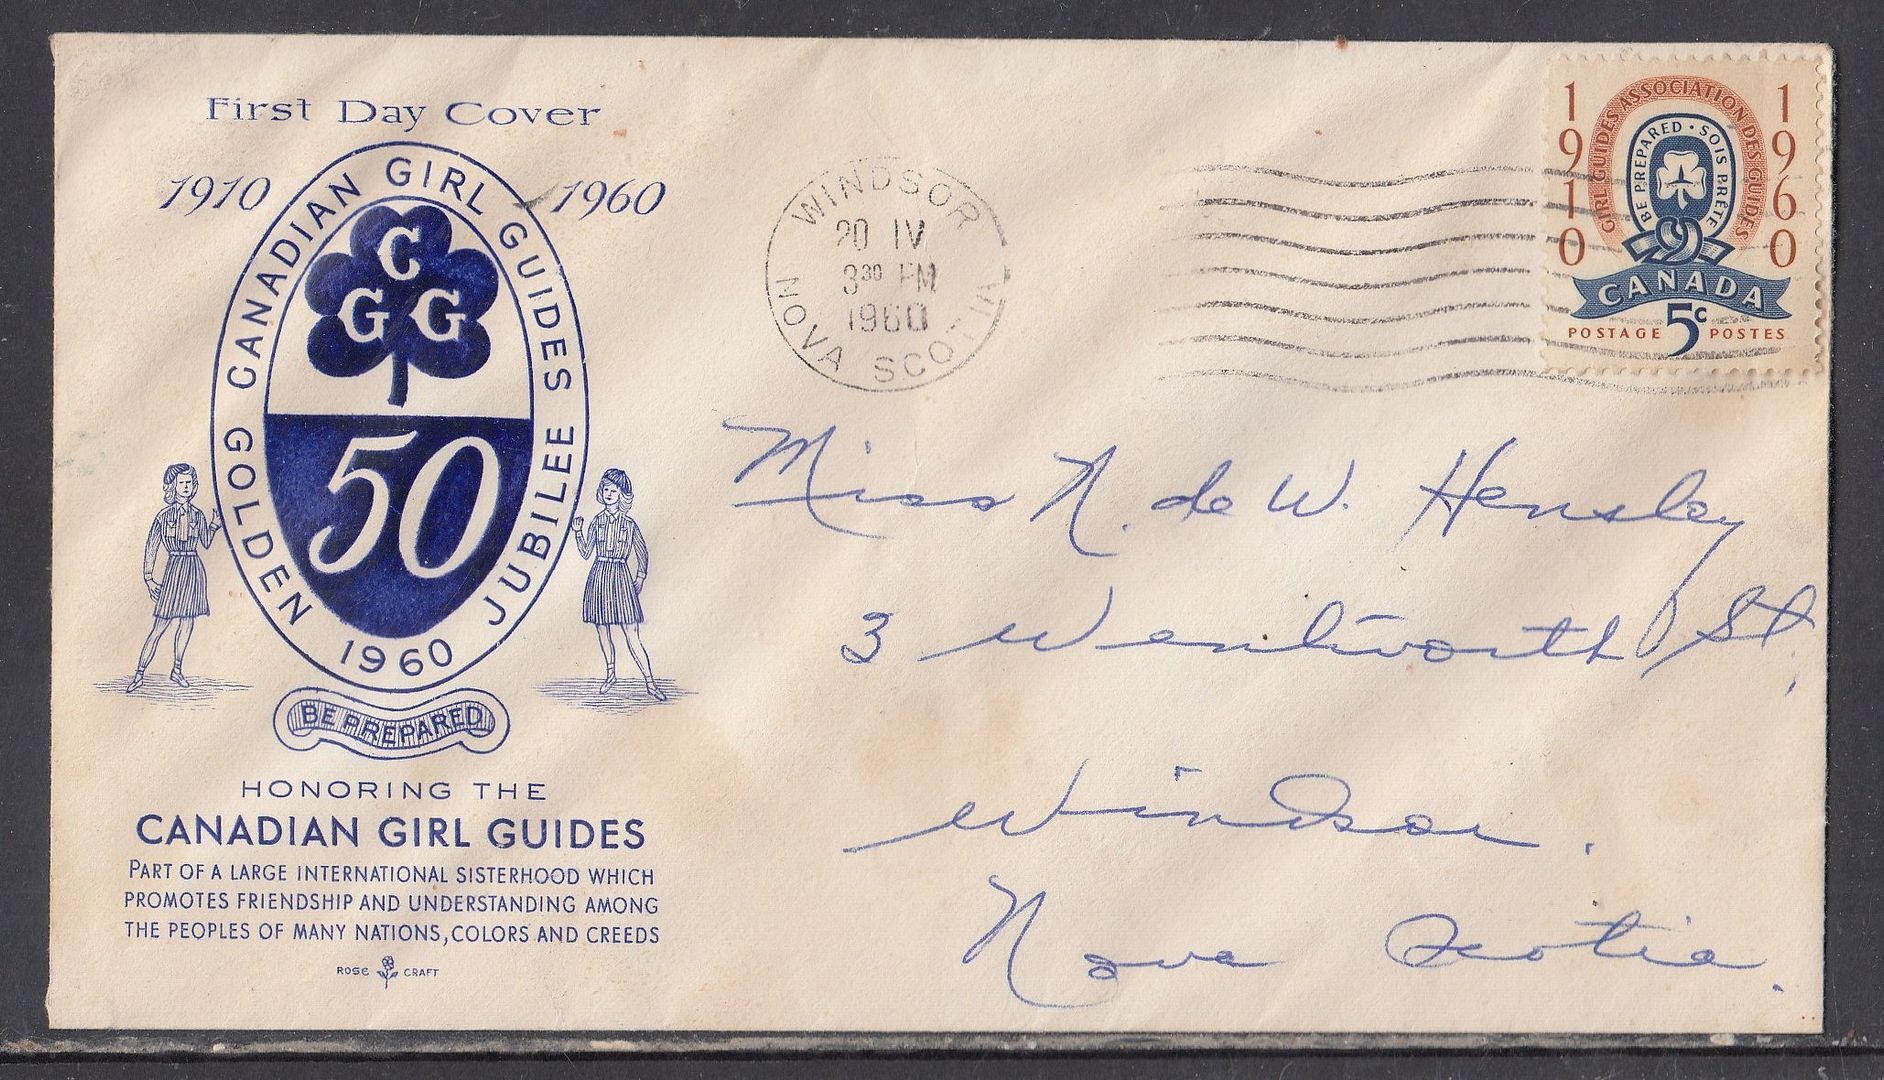 First Day Cover
1910 1960
CANADIAN GIRL GUIDES
GOLDEN JUBILEE
1960
C
G G
50
BE PREPARED
HONORING THE
CANADIAN GIRL GUIDES
PART OF A LARGE INTERNATIONAL SISTERHOOD WHICH
PROMOTES FRIENDSHIP AND UNDERSTANDING AMONG
THE PEOPLES OF MANY NATIONS, COLORS AND CREEDS
ROSE CRAFT
WINDSOR
20 IV
3 30 PM
1960
NOVA SCOTIA
1910 1960
GIRL GUIDES ASSOCIATION DES GUIDES
BE PREPARED · SOIS PRÊTE
CANADA
POSTAGE 5c POSTES
Miss N. de W. Hensley
3 Wentworth St,
Windsor.
Nova Scotia.